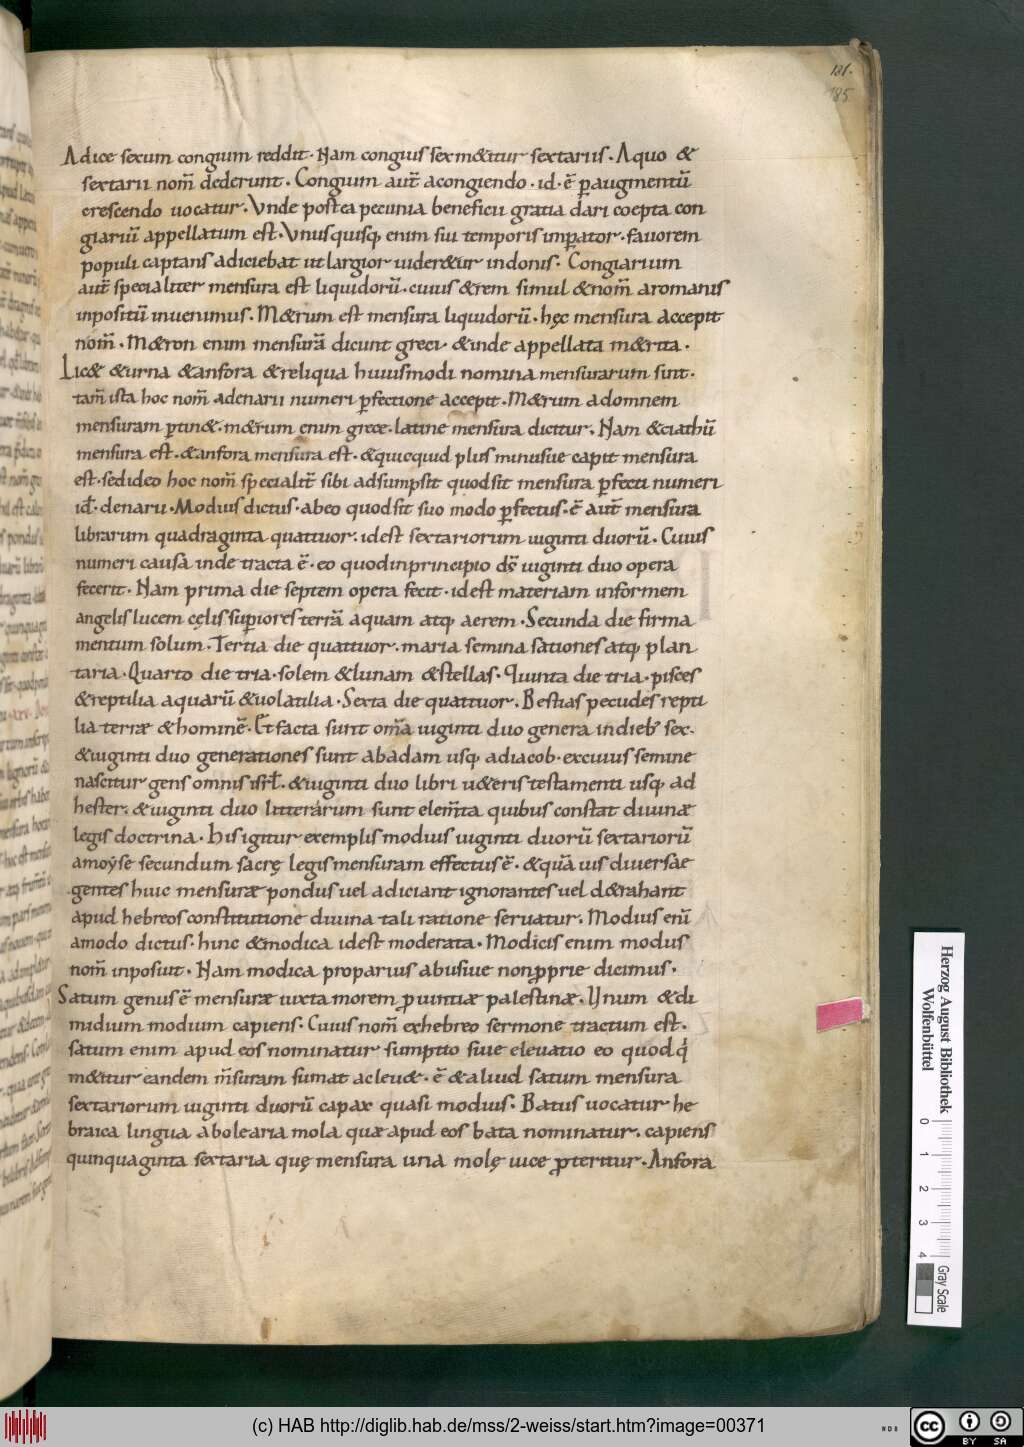 121.
185
Adice sexum congium reddit · Nam congius sex m&itur sextariis · A quo &
sextarii nom̄ dederunt · Congium aut̄ a congiendo · id · ē ꝑ augmentū
crescendo uocatur · Vnde postea pecunia beneficii gratia dari coepta con
giariū appellatum est · Vnusquisq; enim sui temporis imꝑator · fauorem
populi captans adiciebat ut largior uider&ur in donis · Congiarium
aut̄ specialiter mensura est liquidorū · cuius & rem simul & nom̄ a romanis
inpositū inuenimus · M&rum est mensura liquidorū · hęc mensura accepit
nom̄ · M&ron enim mensurā dicunt greci · & inde appellata m&rita ·
Lic& & urna & anfora & reliqua huiusmodi nomina mensurarum sint ·
tam̄ ista hoc nom̄ a denarii numeri ꝑfectione accepit · M&rum ad omnem
mensuram ꝑtin& · m&rum enim grece · latine mensura dicitur · Nam & ciathū
mensura est · & anfora mensura est · & quicquid plus minusue capit mensura
est · sed ideo hoc nom̄ specialit̄ sibi adsumpsit quod sit mensura ꝑfecti numeri
id̄ · denarii · Modius dictus · ab eo quod sit suo modo ꝑfectus · ē aut̄ mensura
librarum quadraginta quattuor · id est sextariorum uiginti duorū · Cuius
numeri causa inde tracta ē · eo quod in principio dš uiginti duo opera
fecerit · Nam prima die septem opera fecit · id est materiam informem
angelis lucem cęlis suꝑiores terrā aquam atq; aerem · Secunda die firma
mentum solum · Tertia die quattuor · maria semina sationes atq; plan
taria · Quarto die tria · solem & lunam & stellas · Quinta die tria · pisces
& reptilia aquarū & uolatilia · Sexta die quattuor · Bestias pecudes repti
lia terræ & hominē · Et facta sunt om̄a uiginti duo genera in dieb; sex ·
& uiginti duo generationes sunt ab adam usq; ad iacob · ex cuius semine
nascitur gens omnis isrł · & uiginti duo libri u&eris testamenti usq; ad
hester · & uiginti duo litterarum sunt elem̄ta quibus constat diuinæ
legis doctrina · His igitur exemplis modius uiginti duorū sextariorū
a moyse secundum sacrę legis mensuram effectus ē · & quā uis diuersae
gentes huic mensuræ pondus uel adiciant ignorantes uel d&rahant
apud hebreos constitutione diuina tali ratione seruatur · Modius enī
a modo dictus · hinc & modica id est moderata · Modicis enim modus
nom̄ inposuit · Nam modica pro paruis abusiue non ꝓprie dicimus ·
Satum genus ē mensuræ iuxta morem ꝓuintiæ palestinæ · Unum & di
midium modium capiens · Cuius nom̄ ex hebreo sermone tractum est ·
satum enim apud eos nominatur sumptio siue eleuatio eo quod q̇
m&itur eandem m̄suram sumat ac leu& · ē & aliud satum mensura
sextariorum uiginti duorū capax quasi modius · Batus uocatur he
braica lingua ab olearia mola quæ apud eos bata nominatur · capiens
quinquaginta sextaria quę mensura una molę uice ꝓteritur · Anfora
Herzog August Bibliothek
Wolfenbüttel
0 1 2 3 4
Gray Scale
(c) HAB http://diglib.hab.de/mss/2-weiss/start.htm?image=00371
cc BY SA